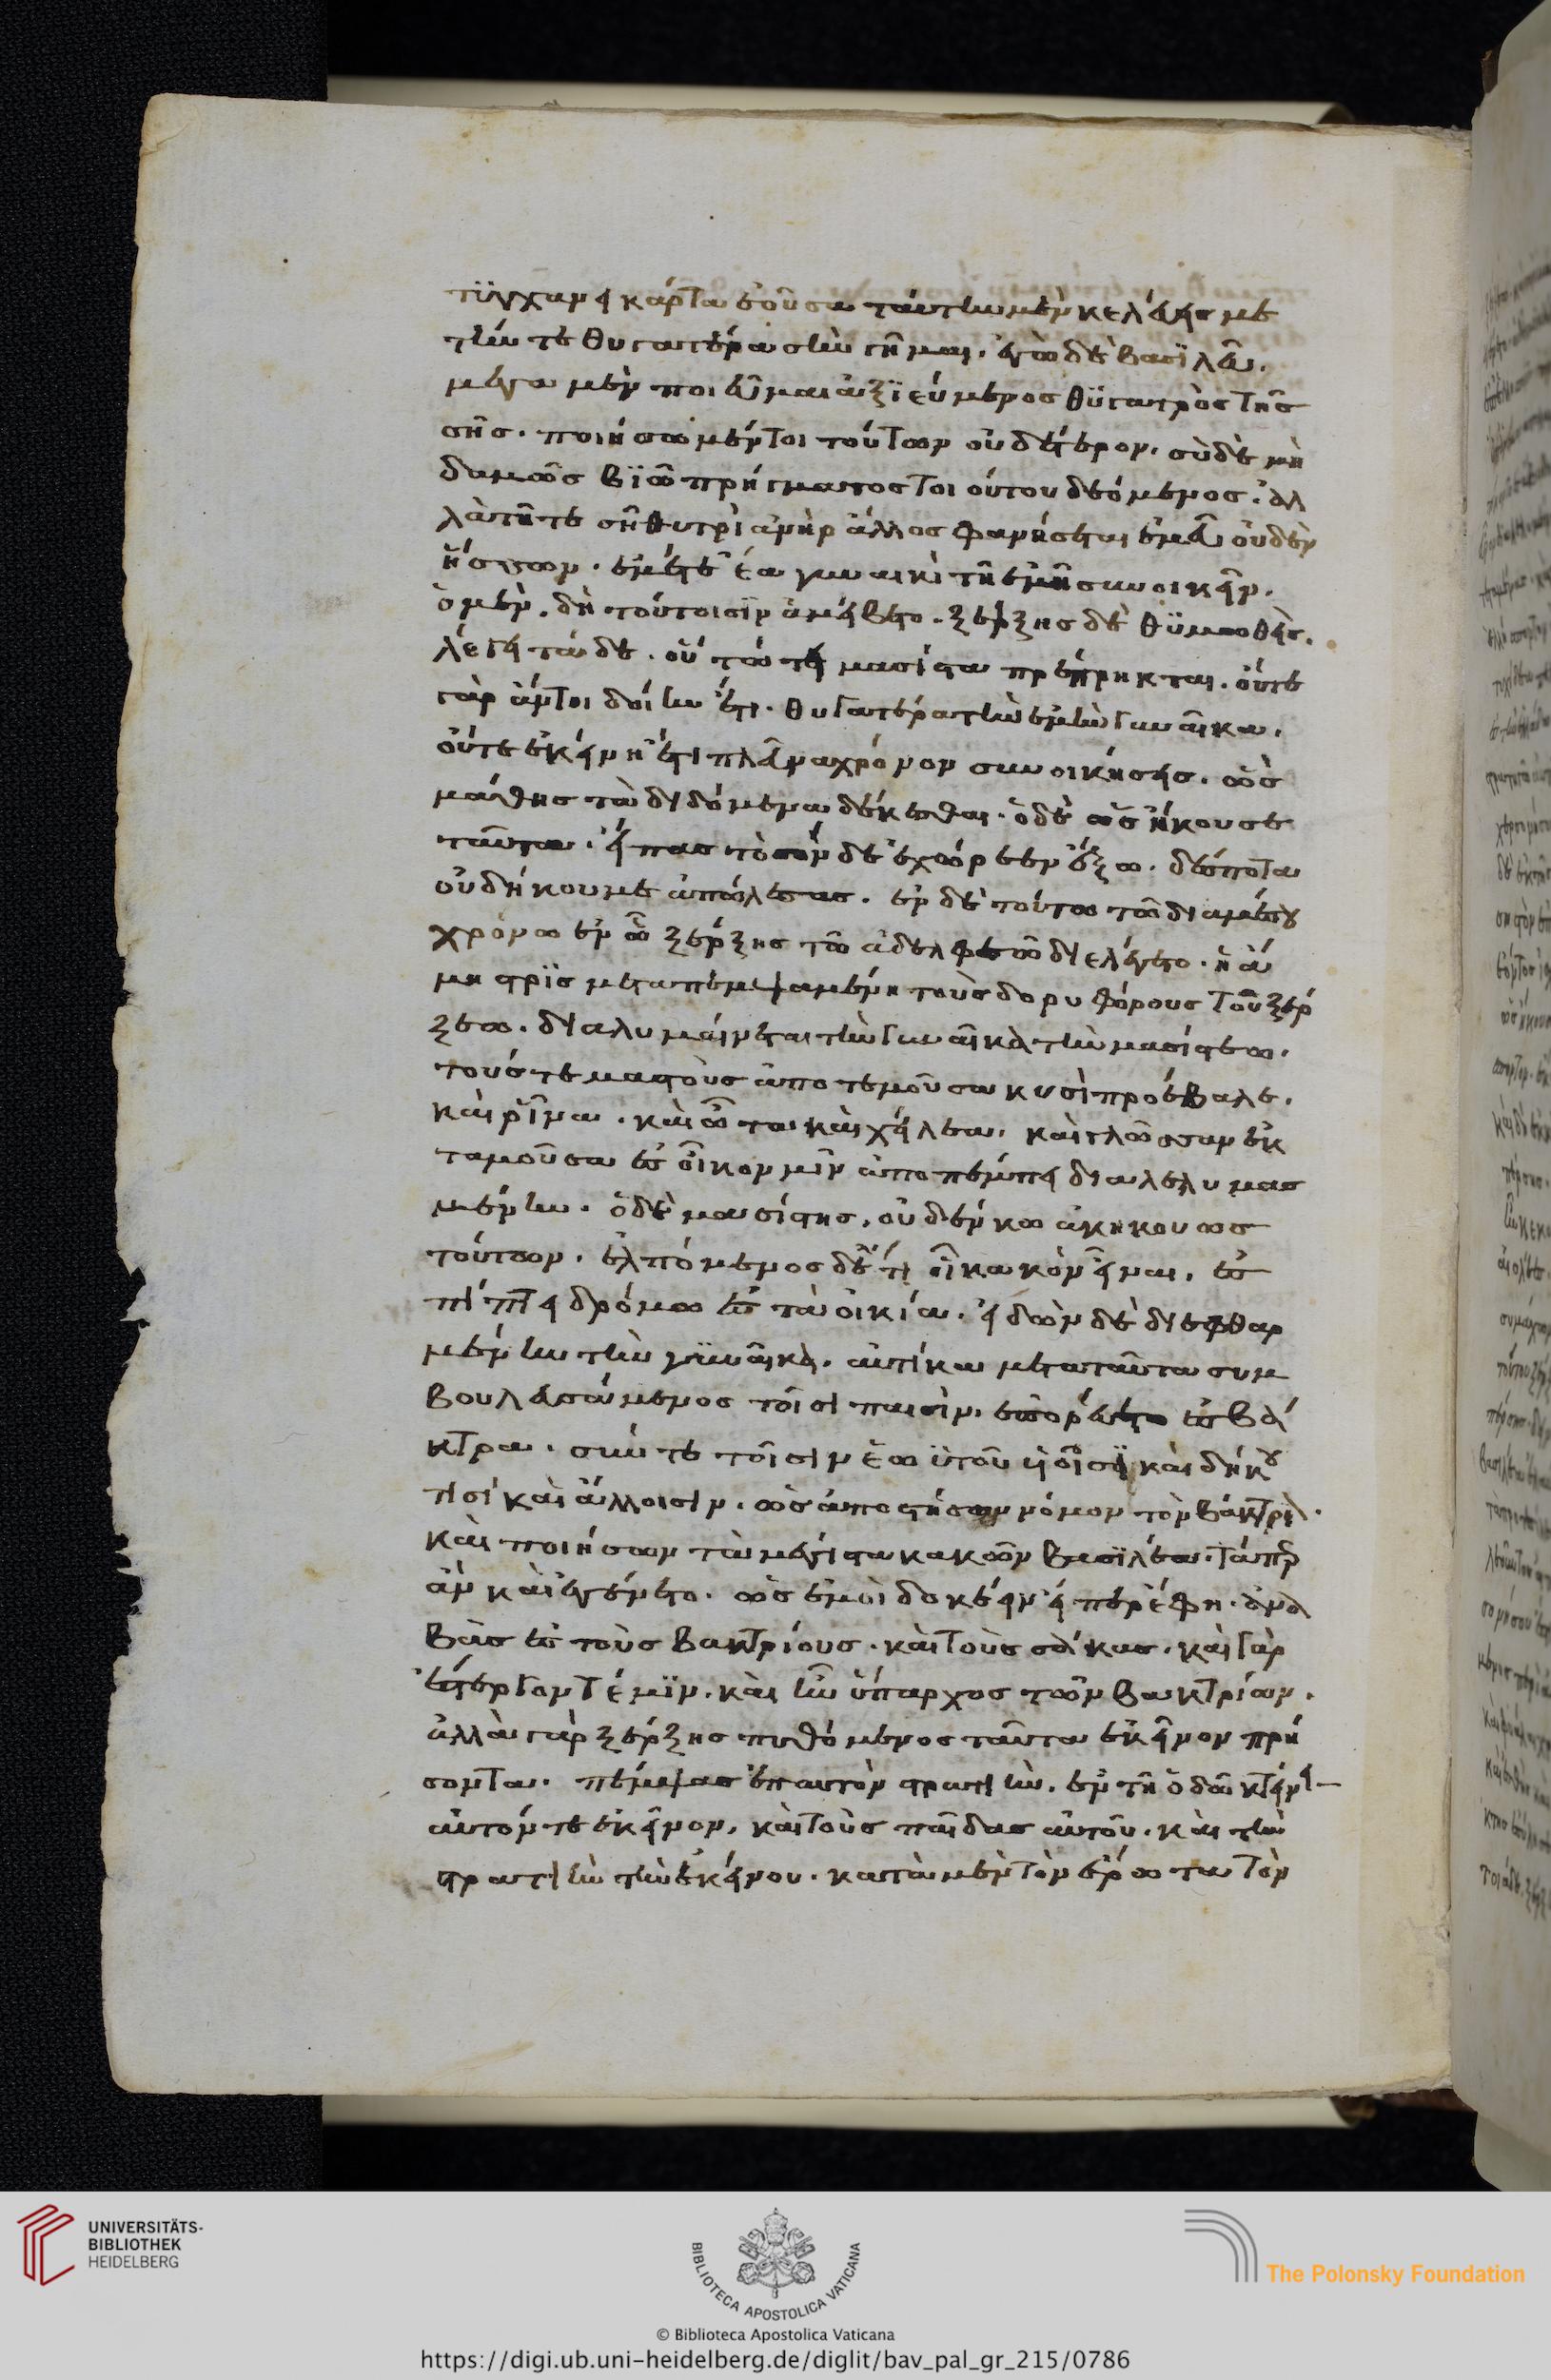 τϋγχάνει κάρτα ἐοῦσα ταύτην μὲν κελεύεις με
τήν τε θυγατέρα σὴν γῆμαι. ἐγὼ δὲ βασϊλεῦ.
μεγα μὲν ποιεῦμαι ἀξϊεύμενος θϋγατρὸς τῆς
σῆς. ποιήσω μέντοι τούτων οὐδέτερον. σὺ δὲ μὴ
δαμῶς βϊῶ πρήγματος τοι οὔτου δεόμενος. ἀλ
λὰ τῆ τε σῆ θυτρὶ ἀνὴρ ἄλλος φανήσεται ἐμεῦ οὐδὲν
ἥσσων. ἐμέ τε ἔα γυναικὶ τῆ ἐμῆ συνοικεῖν.
ὁ μὲν. δὴ τούτοισϊν ἀμείβετο. ξέρξης δὲ θϋμωθεὶς.
λέγει τάδε. οὕτω τοι μασίστα πρέπρηκται. οὔτε
γὰρ ἄν τοι δοίην ἔτι. θυγατέρα τὴν ἐμὴν γυναῖκα.
οὔτε ἐκείνη ἔτι πλεῦνα χρόνον συνοικήσεις. ὡς
μάθης τὰ διδόμενα δέκεσθαι. ὁ δὲ ὡς ἤκουσε
ταῦτα. εἴπας τοσόνδε ἐχώρεεν ἔξω. δέσποτα
οὐ δή κου με ἀπώλεσας. ἐν δὲ τούτω τῶ διαμέσου
χρόνω ἐν ῶ ξέρξης τῶ ἀδελφεῶ διελέγετο. ἡ ἄ
μηστρϊς μεταπεμψαμένη τοὺς δορυφόρους τοῦ ξέρ
ξεω. διαλυμαίνεται τὴν γυναῖκα τὴν μασίστεω.
τούς τε μαστοὺς ἀποτεμοῦσα κυσὶ προέβαλε.
καὶ ρῖνα. καὶ ὦτα καὶ χείλεα. καὶ γλῶσσαν ἐκ
ταμοῦσα ἐς οἶκον μϊν ἀποπέμπει διαλελυμας
μένην. ὁ δὲ μασίστης. οὐδέν κω ἀκηκοὼς
τούτων. ἐλπόμενος δέ τί οἱ κακὸν εἶναι. ἐς
πίπτει δρόμω ἐς τὰ οἰκία. ἰδὼν δὲ διεφθαρ
μένην τὴν γϋναῖκα. αὐτίκα μετὰ ταῦτα συμ
βουλευσάμενος τοῖσι παισὶν. ἐπορεύετο ἐς βά
κτρα. σύν τε τοῖσιν ἑωϋτοῦ υἱοῖσϊ καὶ δή κου
τισὶ καὶ ἄλλοισιν. ὡς ἀποστήσων νόμον τὸν βάκτριον.
καὶ ποιήσων τὰ μέγιστα κακῶν βασϊλέα. τάπερ
ἂν καὶ ἐγένετο. ὡς ἐμοὶ δοκέειν εἴπερ ἔφη. ἀνα
βὰς ἐς τοὺς βακτρίους. καὶ τοὺς σάκας. καὶ γὰρ
ἔστεργόν τέ μϊν. καὶ ἦν ὕπαρχος τῶν βακτρίων.
ἀλλὰ γὰρ ξέρξης πυθόμενος ταῦτα ἐκεῖνον πρή
σοντα. πέμψας ἐπ αὐτὸν στρατιὴν. ἐν τῆ ὁδῶ κτείνει
αὐτόν τε ἐκεῖνον. καὶ τοὺς παῖδας αὐτοῦ. καὶ τὴν
στρατιὴν τὴν ἐκείνου. κατὰ μὲν τὸν ἔρωτα τὸν
UNIVERSITÄTS-
BIBLIOTHEK
HEIDELBERG
BIBLIOTECA APOSTOLICA VATICANA
The Polonsky Foundation
© Biblioteca Apostolica Vaticana
https://digi.ub.uni-heidelberg.de/diglit/bav_pal_gr_215/0786